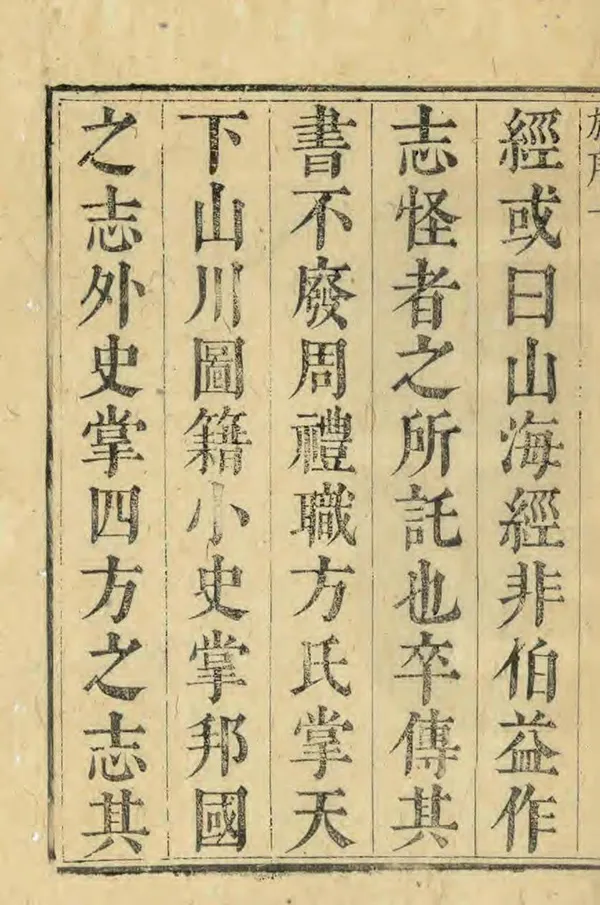 經或曰山海經非伯益作
志怪者之所託也卒傳其
書不廢周禮職方氏掌天
下山川圖籍小史掌邦國
之志外史掌四方之志其